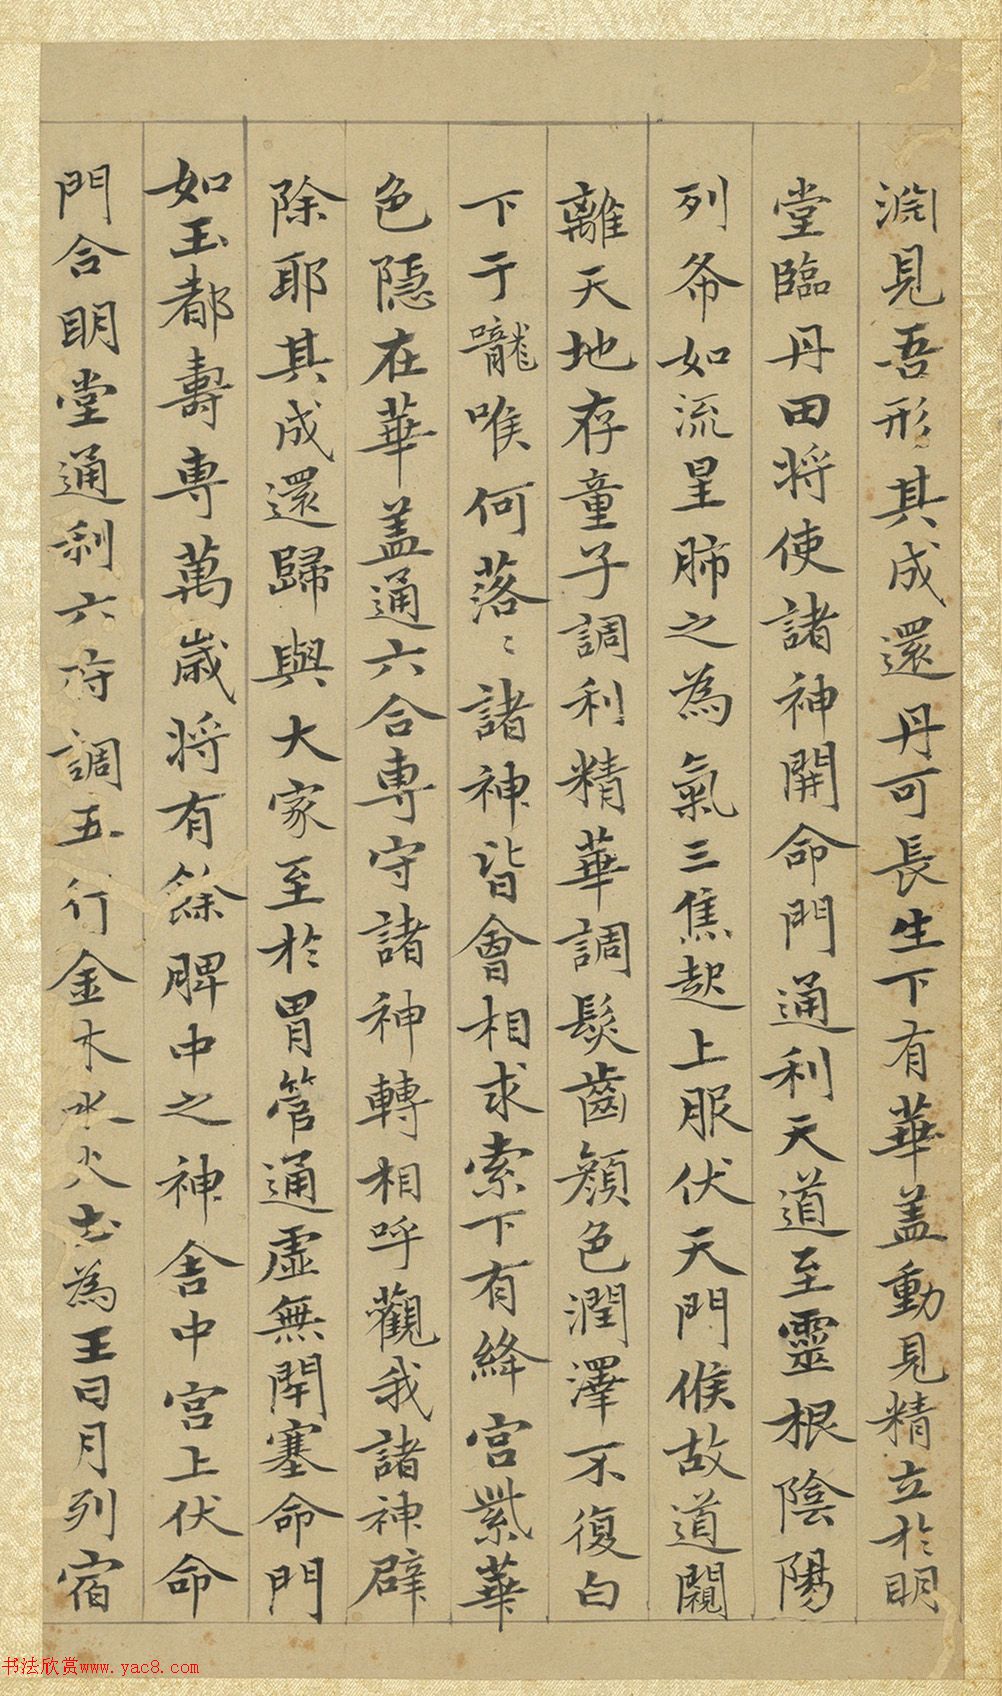 淵見吾形其成還丹可長生下有華盖動見精立於明
堂臨丹田将使諸神開命門通利天道至靈根陰陽
列布如流星肺之為氣三焦起上服伏天門候故道闚
離天地存童子調利精華調髮齒顏色潤澤不復白
下于嚨喉何落〻諸神皆會相求索下有絳宮紫華
色隱在華盖通六合専守諸神轉相呼觀我諸神辟
除耶其成還歸與大家至於胃管通虛無閉塞命門
如玉都壽専萬歲将有餘脾中之神舍中宮上伏命
門合明堂通利六府調五行金木水火土為王日月列宿
书法欣赏www.yac8.com